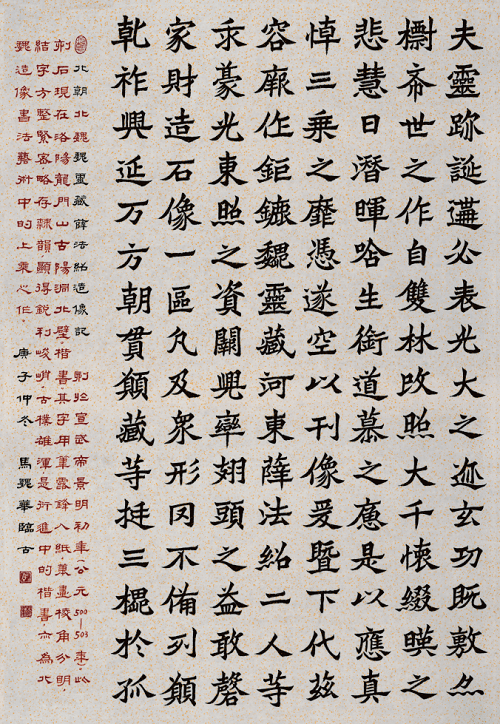 夫靈跡誕遘必表光大之迹玄功既敷亦
標希世之作自雙林改照大千懷綴暎之
悲慧日潛暉唅生銜道慕之懬是以應真
悼三乘之靡憑遂空以刊像爰暨下代茲
容廓作鉅鏕魏靈藏河東薛法紹二人等
求豪光東照之資闕兜率翅頭之益敢磬
家財造石像一區凡及眾形罔不俻列願
乾祚興延万方朝貫願藏等挺三槐於孤
北朝北魏魏靈藏薛法紹造像記 刺於宣武帝景明初年(公元500—503年),此
刺石現在洛陽龍門山古陽洞北壁,楷書,其字用筆露鋒入紙,筆畫棱角分明,
結字方整緊密,略存隸韻,顯得銳利峻峭,古樸雄渾,是行進中的楷書,亦為北
魏造像書法藝術中的上乘之作。 庚子仲冬 馬魏華臨古